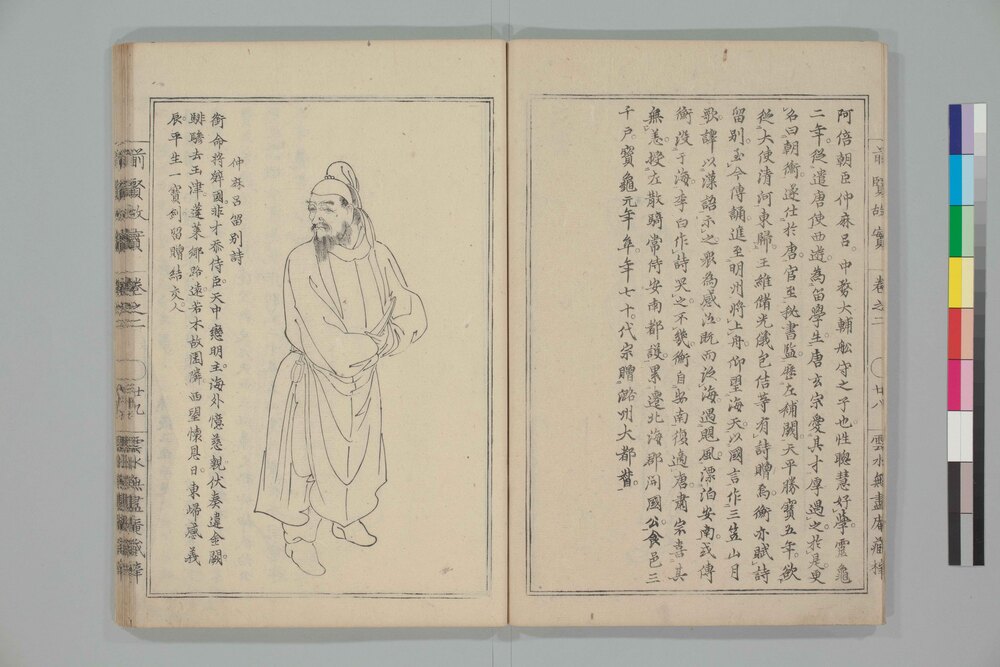 前賢故實　卷之二　〇　廿八　雲水無盡庵藏梓
阿倍朝臣仲麻呂。中務大輔舩守之子也。性聰慧好學。靈龜
二年。從遣唐使西遊。為留學生。唐玄宗愛其才厚遇之。於是更
名曰朝衡。遂仕於唐。官至秘書監。歷左補闕。天平勝寶五年。欲
從大使清河東歸。王維儲光儀包佶等。有詩贈焉。衡亦賦詩
留別。至今傳誦。進至明州將上舟。仰望海天。以國言作三笠山月
歌。譯以漢語示之。衆為感泣。既而浮海遇颶風。漂泊安南。或傳
衡沒于海。李白作詩哭之。不幾衡自安南復適唐。肅宗喜其
無恙。授左散騎常侍安南都護。累遷北海郡開國公食邑三
千戶。寶龜元年卒。年七十。代宗贈潞州大都督。
仲麻呂留別詩
銜命將辭國。非才忝侍臣。天中戀明主。海外憶慈親。伏奏違金闕。
騑驂去玉津。蓬萊鄉路遠。若木故園隣。西望懷恩日。東歸感義
辰。平生一寶劍。留贈結交人
前賢故實　卷之二　〇　廿九　雲水無盡庵藏梓